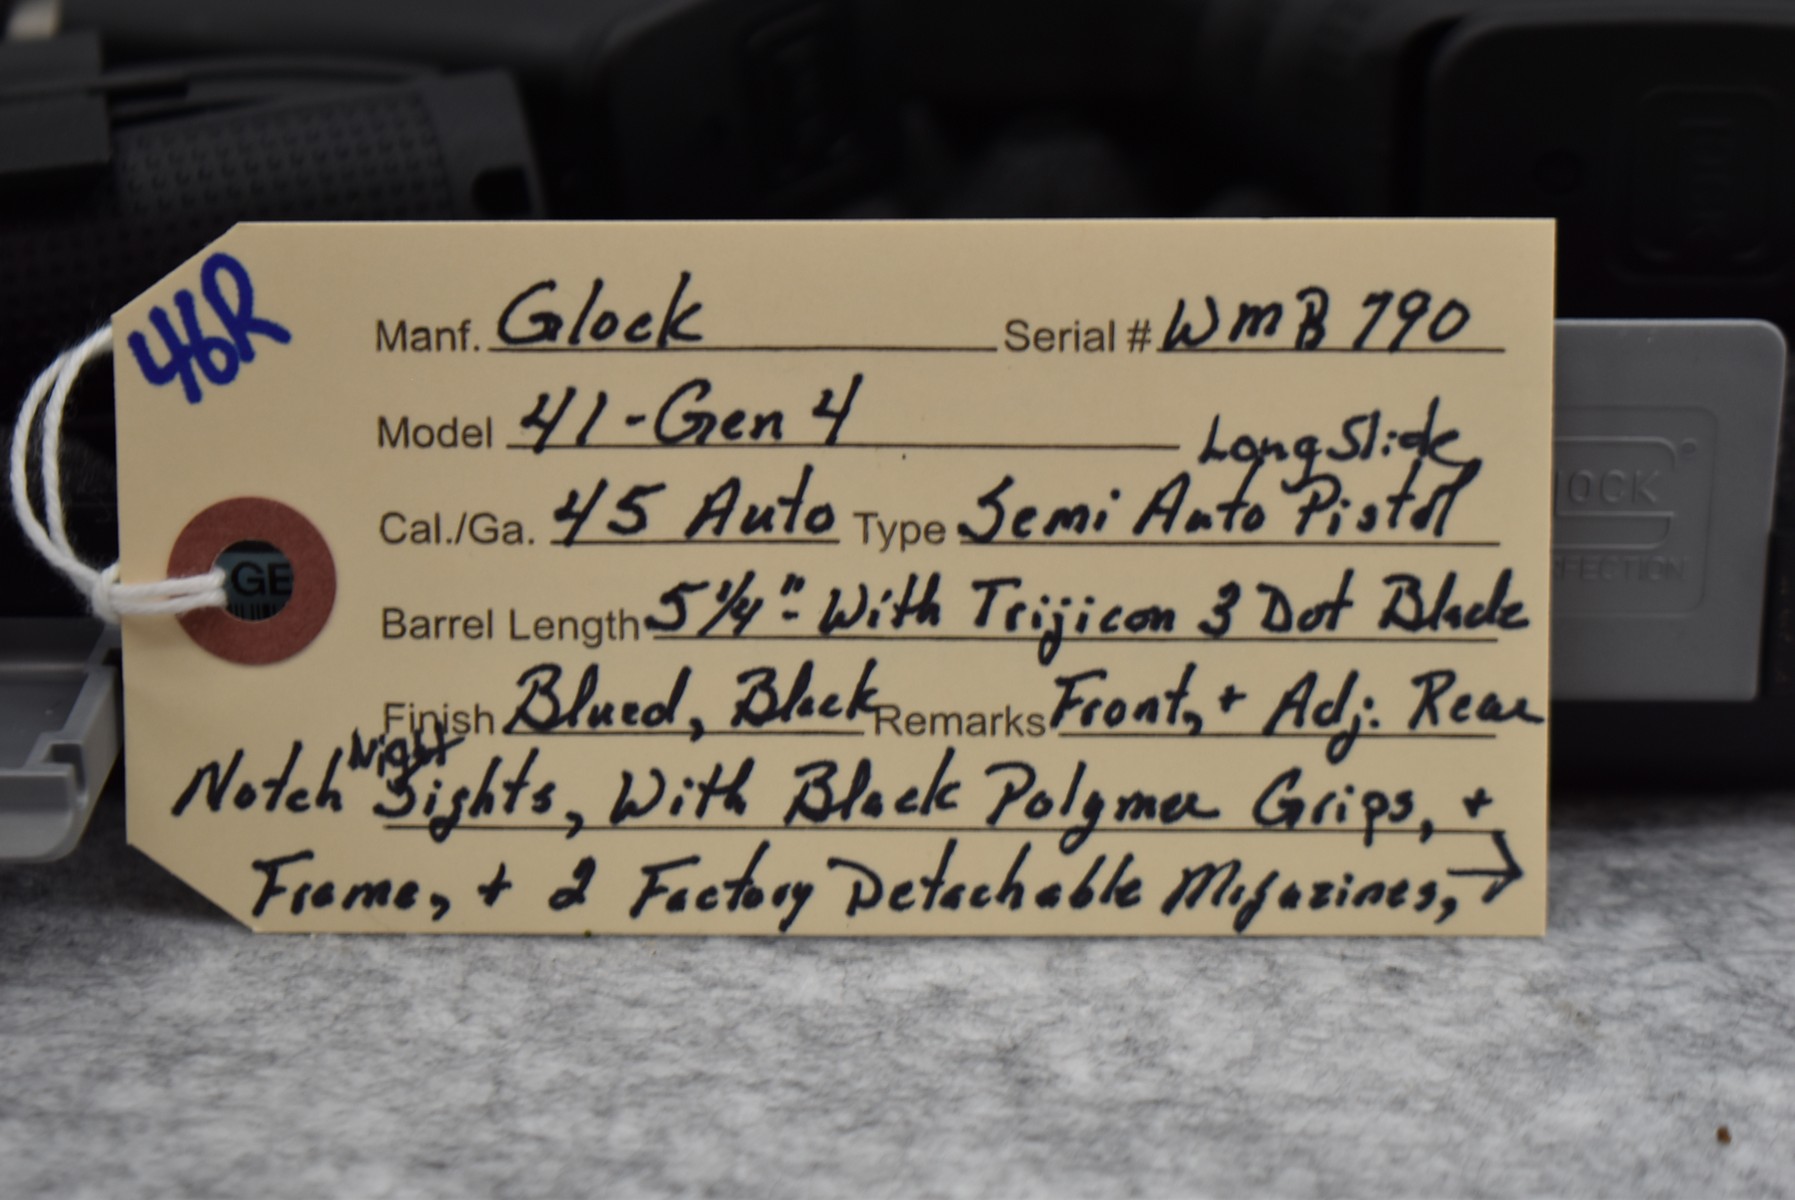 46R
Manf. Glock Serial # WMB 790
Model 41-Gen 4 Long Slide
Cal./Ga. 45 Auto Type Semi Auto Pistol
Barrel Length 5 1/4"- With Trijicon 3 Dot Blade
Finish Blued, Black Remarks Front, + Adj. Rear
Notch Night Sights, With Black Polymer Grips, +
Frame, + 2 Factory Detachable Magazines, →
GE
OCK
FECTION